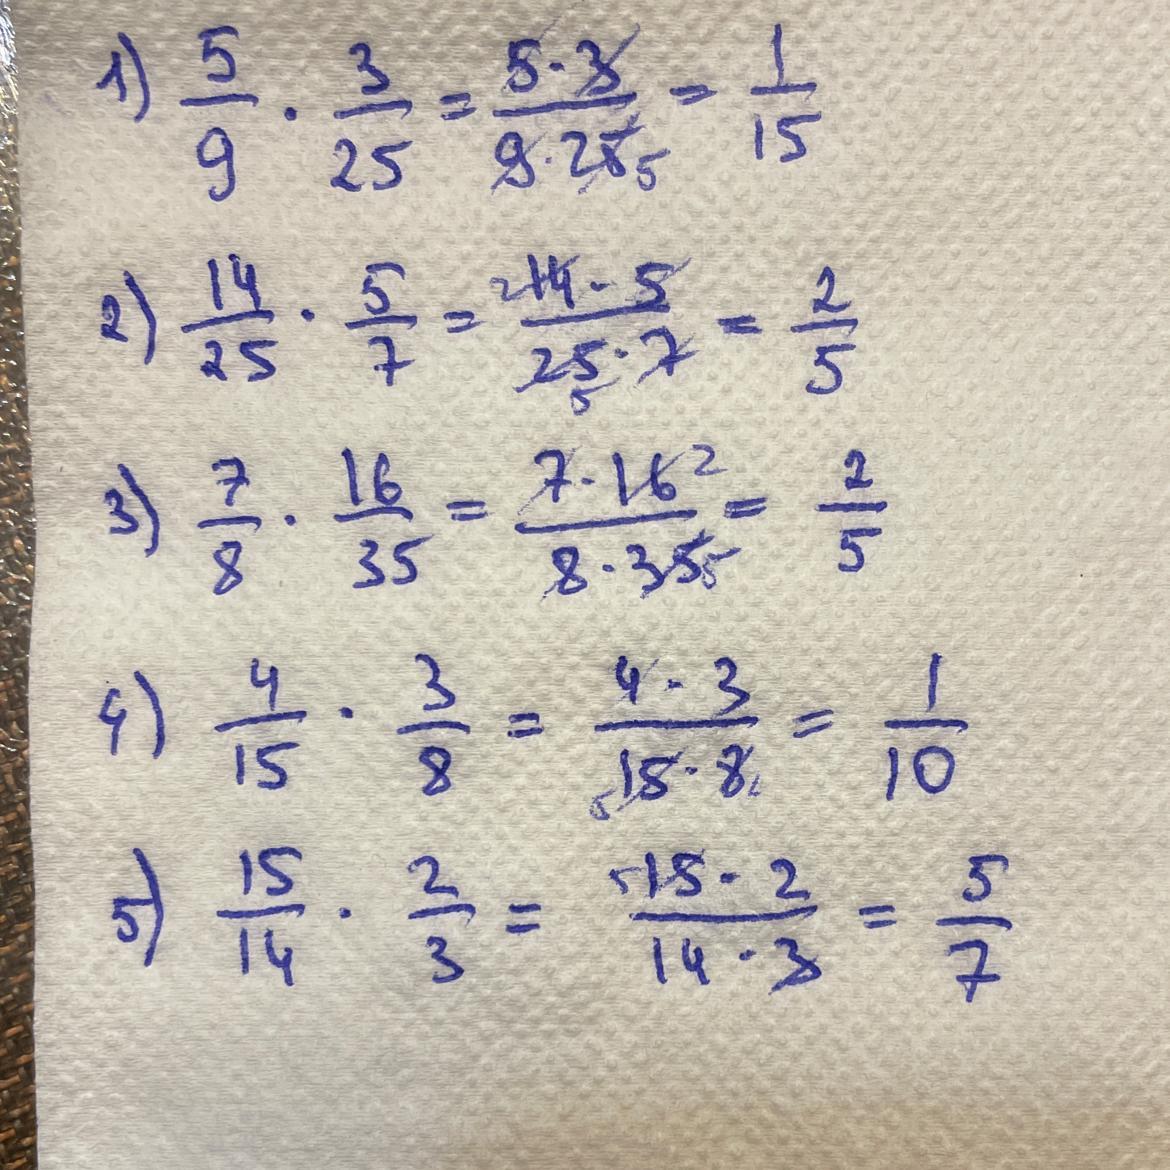 1) 5/9 · 3/25 = 5·3/9·25 5 = 1/15
2) 14/25 · 5/7 = 2 14·5/25·7 5 = 2/5
3) 7/8 · 16/35 = 7·16 2/8·35 5 = 2/5
4) 4/15 · 3/8 = 4·3/5 15·8 = 1/10
5) 15/14 · 2/3 = 5 15·2/14·3 = 5/7